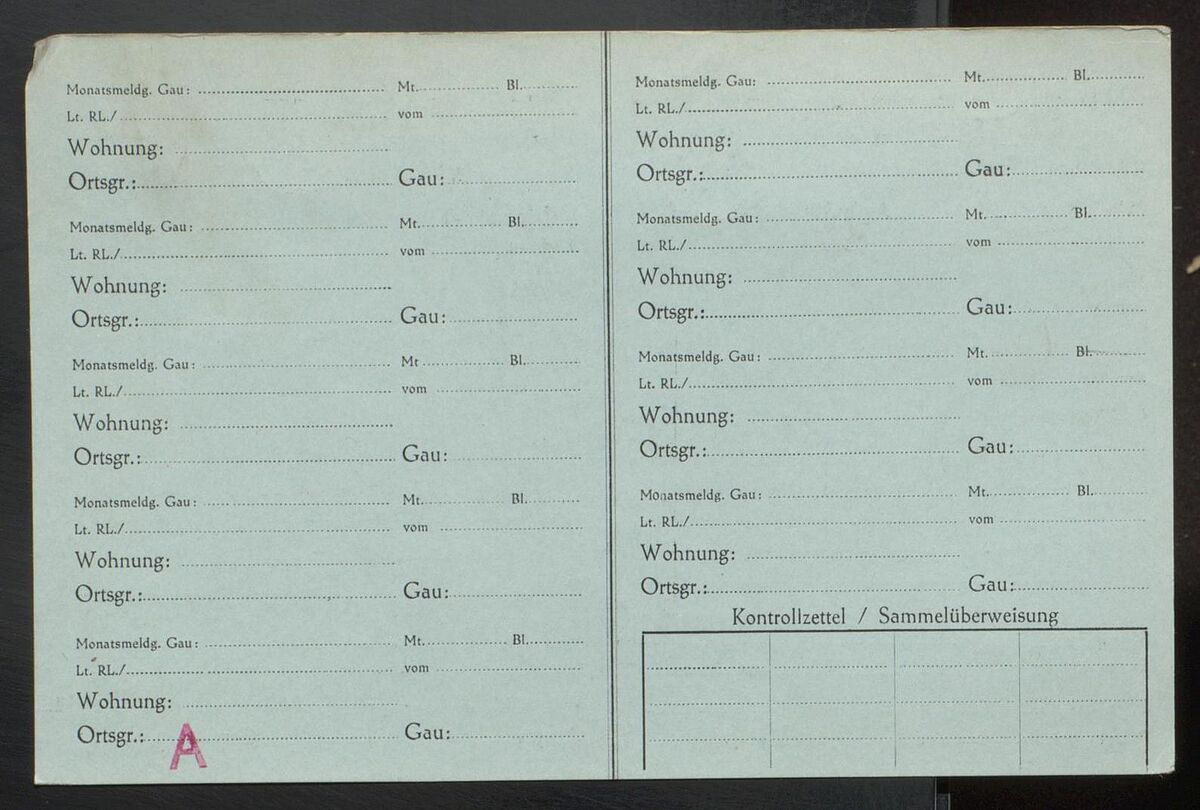 Monatsmeldg. Gau: Mt. Bl.
Lt. RL./ vom
Wohnung:
Ortsgr.: Gau:
Monatsmeldg. Gau: Mt. Bl.
Lt. RL./ vom
Wohnung:
Ortsgr.: Gau:
Monatsmeldg. Gau: Mt Bl.
Lt. RL./ vom
Wohnung:
Ortsgr.: Gau:
Monatsmeldg. Gau: Mt. Bl.
Lt. RL./ vom
Wohnung:
Ortsgr.: Gau:
Monatsmeldg. Gau: Mt. Bl.
Lt. RL./ vom
Wohnung:
Ortsgr.: Gau:
A
Monatsmeldg. Gau: Mt. Bl.
Lt. RL./ vom
Wohnung:
Ortsgr.: Gau:
Monatsmeldg. Gau: Mt. Bl.
Lt. RL./ vom
Wohnung:
Ortsgr.: Gau:
Monatsmeldg. Gau: Mt. Bl.
Lt. RL./ vom
Wohnung:
Ortsgr.: Gau:
Monatsmeldg. Gau: Mt. Bl.
Lt. RL./ vom
Wohnung:
Ortsgr.: Gau:
Kontrollzettel / Sammelüberweisung